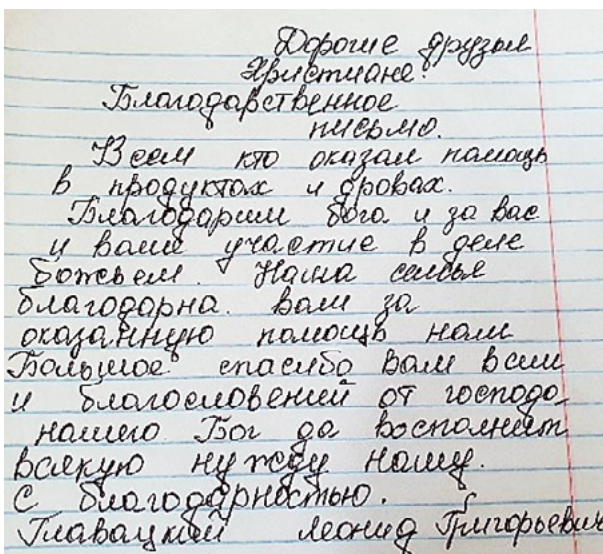 Дорогие друзья
Христиане!
Благодарственное
письмо.
Всем кто оказал помощь
в продуктах и дровах.
Благодарим бога и за вас
и ваше участие в деле
божьем. Наша семья
благодарна. вам за
оказанную помощь нам
Большое спасибо вам всем
и благословений от господа
нашего Бог да восполнит
всякую нужду нашу.
С благодарностью.
Главацкий Леонид Григорьевич